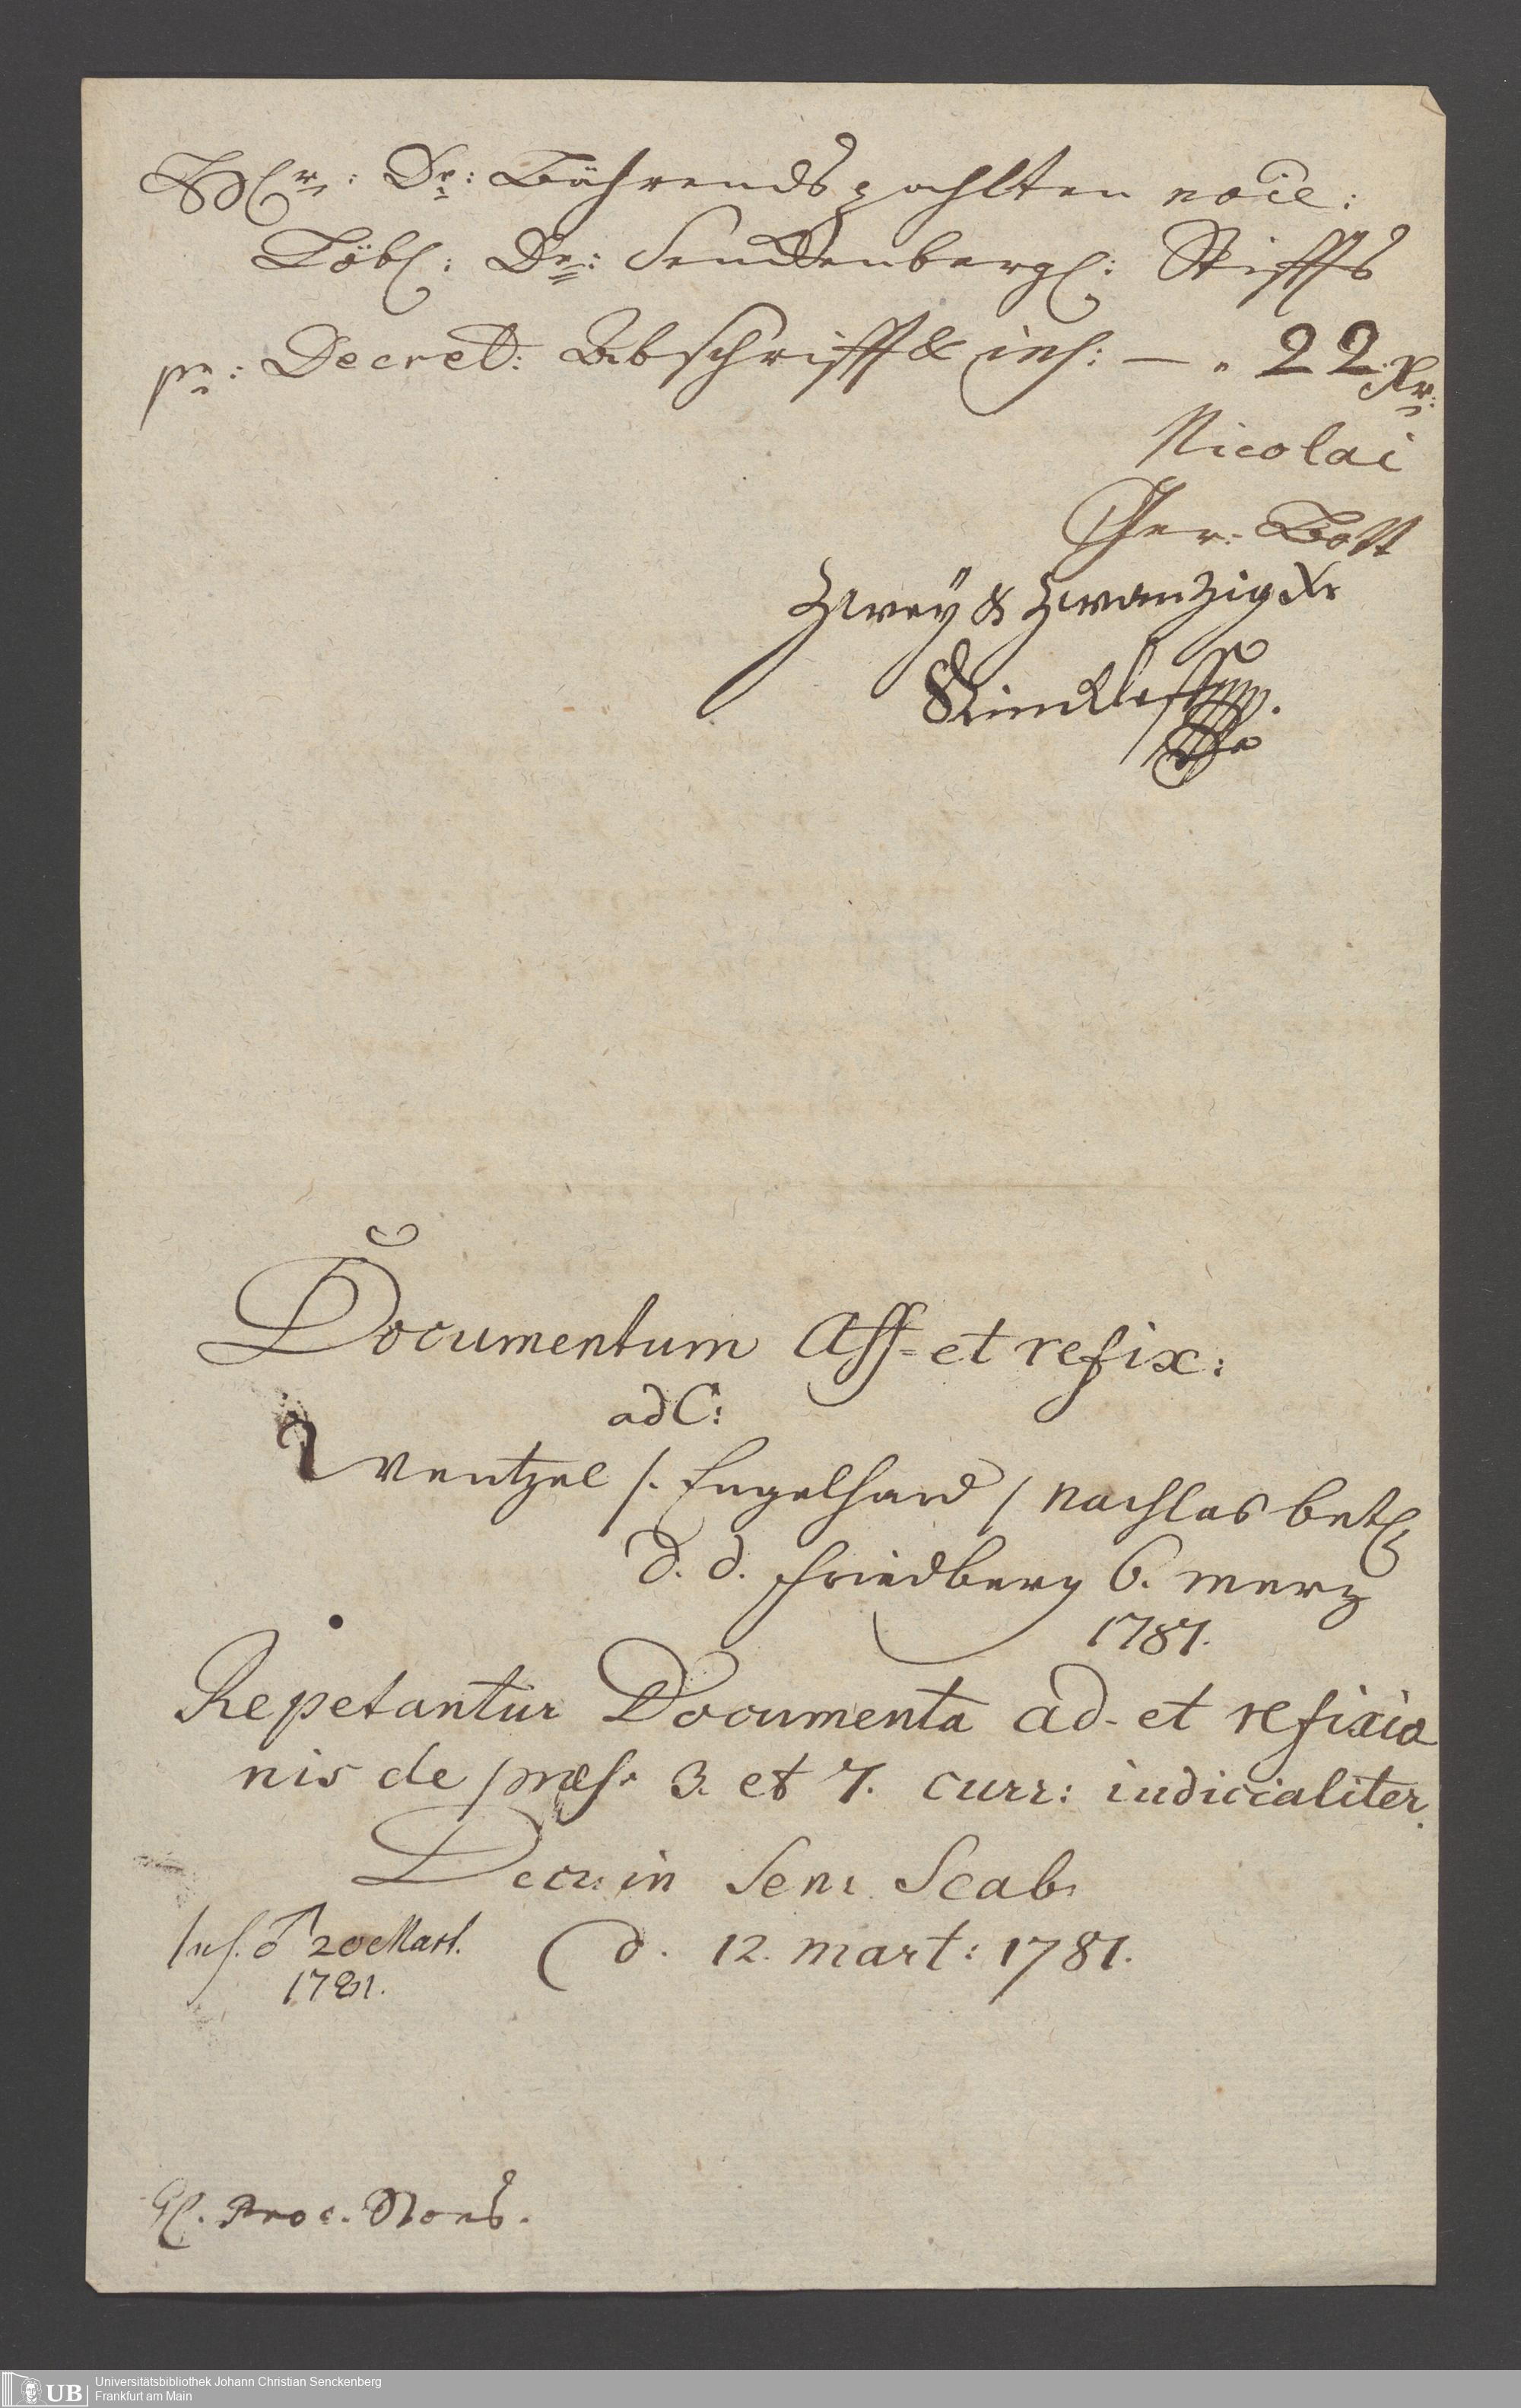 Hr: Dr: Bährends zahlten noie:
Löbl: Dr: Senckenbergl: Stiffts
pr: Decret: Abschrifft & ins: — . 22 Xr:
Nicolai
Ger: Bott
Zwey & Zwanzig Xr
Documentum Aff= et refix:
ad C:
Wentzel /. Engelhard / Nachlas betl
d. d. Friedberg 6. Merz
1781.
Repetantur Documenta ad- et refixio
nis de præs. 3. et 7. curr: iudicialiter.
Decr: in Sen: Scab:
d. 12. mart: 1781.
Ins. ♂ 20 Mart.
1781.
H. Proc. Mors.
UB
Universitätsbibliothek Johann Christian Senckenberg
Frankfurt am Main